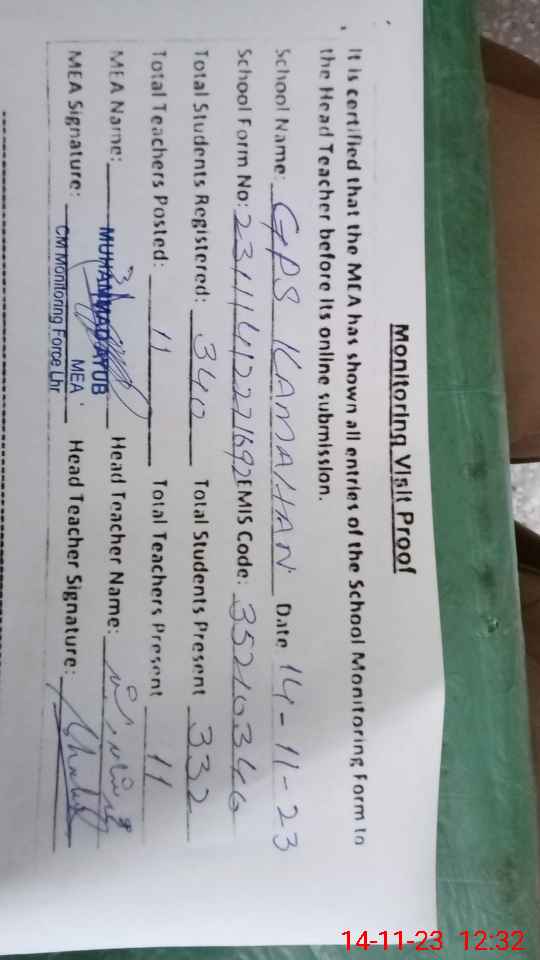 Monitoring Visit Proof
It is certified that the MEA has shown all entries of the School Monitoring Form to
the Head Teacher before its online submission.
School Name: GPS KAMAHAN Date 14-11-23
School Form No: EMIS Code: 35210346
Total Students Registered: 340 Total Students Present 332
Total Teachers Posted: 11 Total Teachers Present 11
MEA Name: MUHAMMAD AYUB Head Teacher Name:
MEA
MEA Signature: CM Monitoring Force Lhr Head Teacher Signature:
14-11-23 12:32